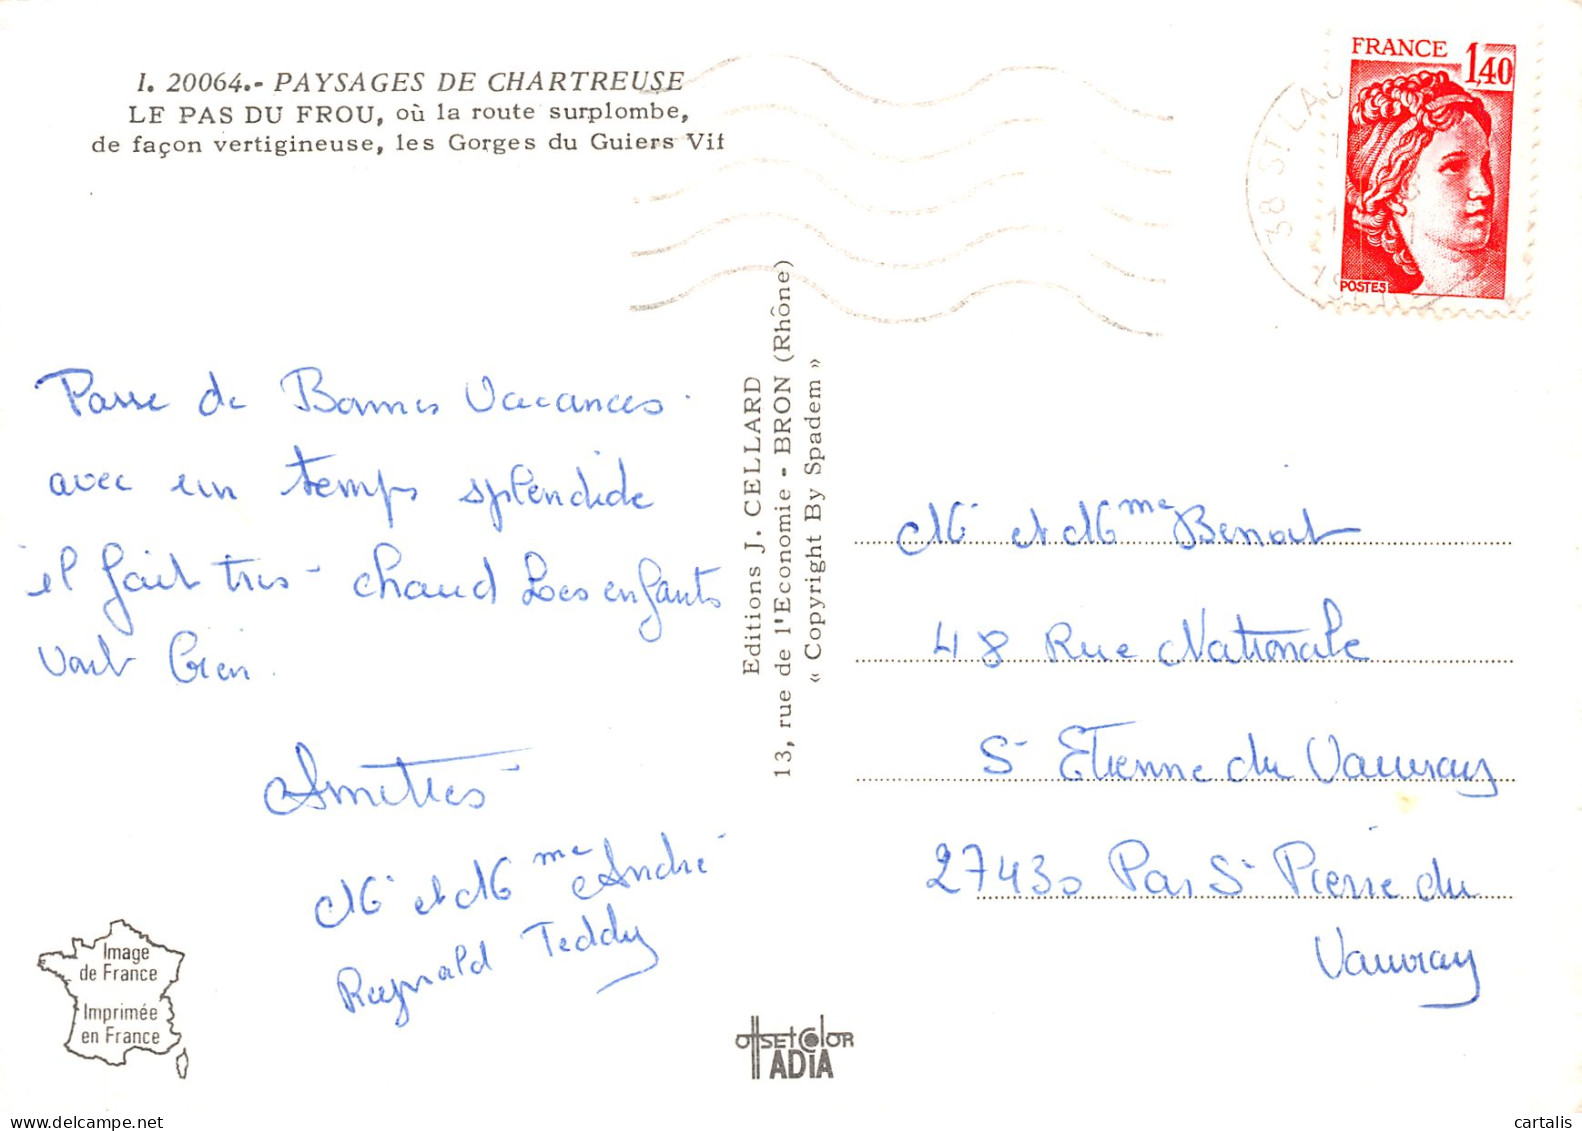 I. 20064.- PAYSAGES DE CHARTREUSE
LE PAS DU FROU, où la route surplombe,
de façon vertigineuse, les Gorges du Guiers Vif
FRANCE 1,40
POSTES
38 ST LAU
Passe de Bonnes Vacances.
avec un temps splendide
il fait très chaud Les enfants
vont bien.
Amitiés
Mr et Mme André
Reynald Teddy
Editions J. CELLARD
13, rue de l'Economie - BRON (Rhône)
« Copyright By Spadem »
Mr et Mme Benoit
48 Rue Nationale
St Etienne du Vauvray
27430 Par St Pierre du
Vauvray
Image
de France
Imprimée
en France
offset color
ADIA
cartalis
delcampe.net